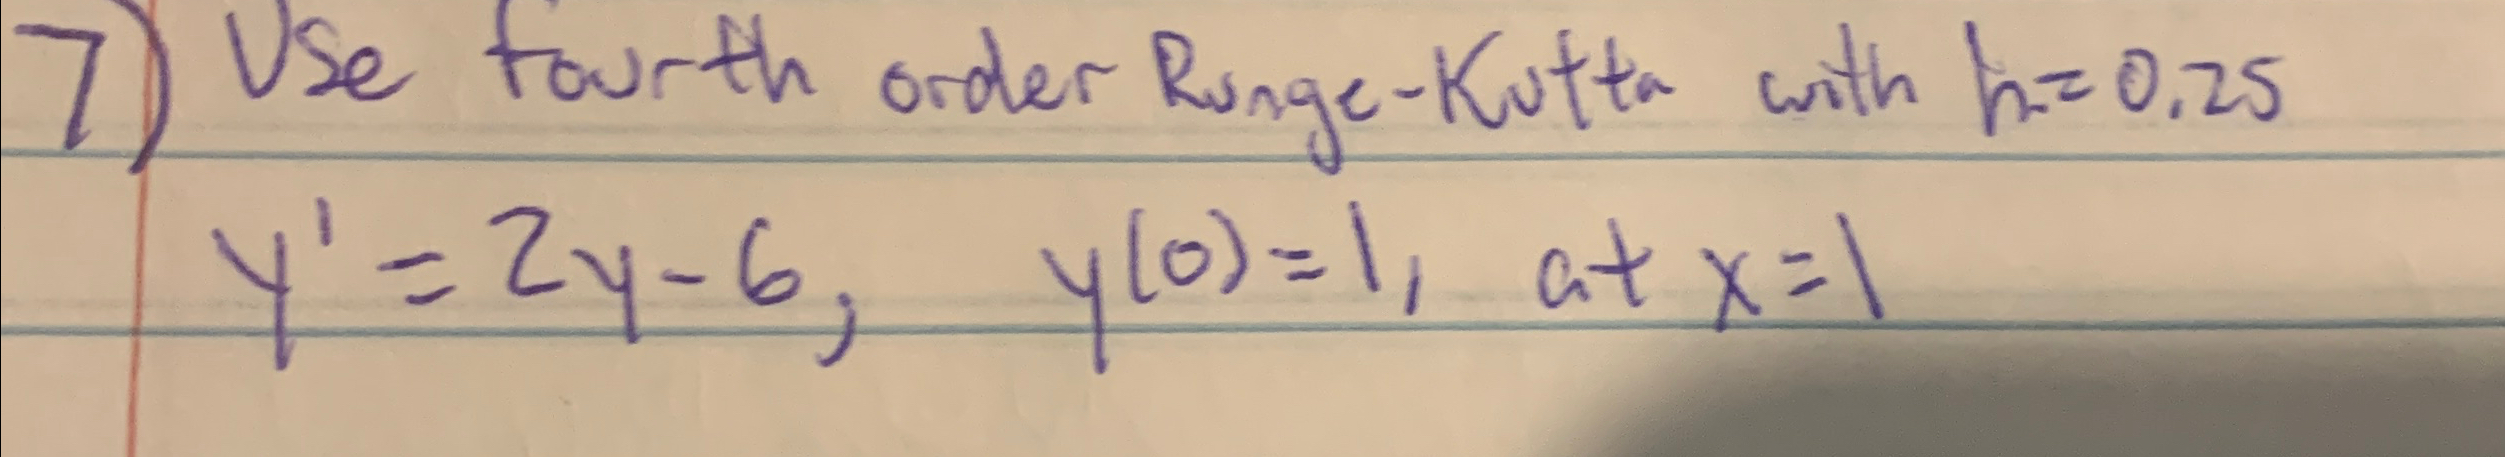 7) Use fourth order Runge-Kutta with h=0.25
y' = 2y-6, y(0)=1, at x=1